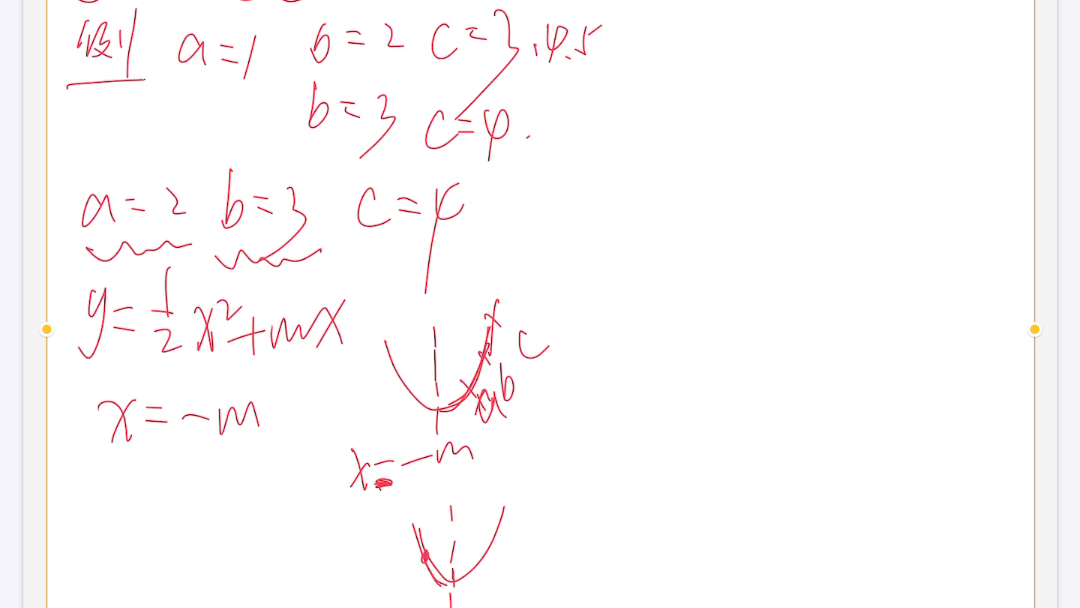 级别 a=1 b=2 c=3,4.5
b=3 c=4.
a=2 b=3 c=4
y=½x²+mx
c
ab
x=-m
x=-m